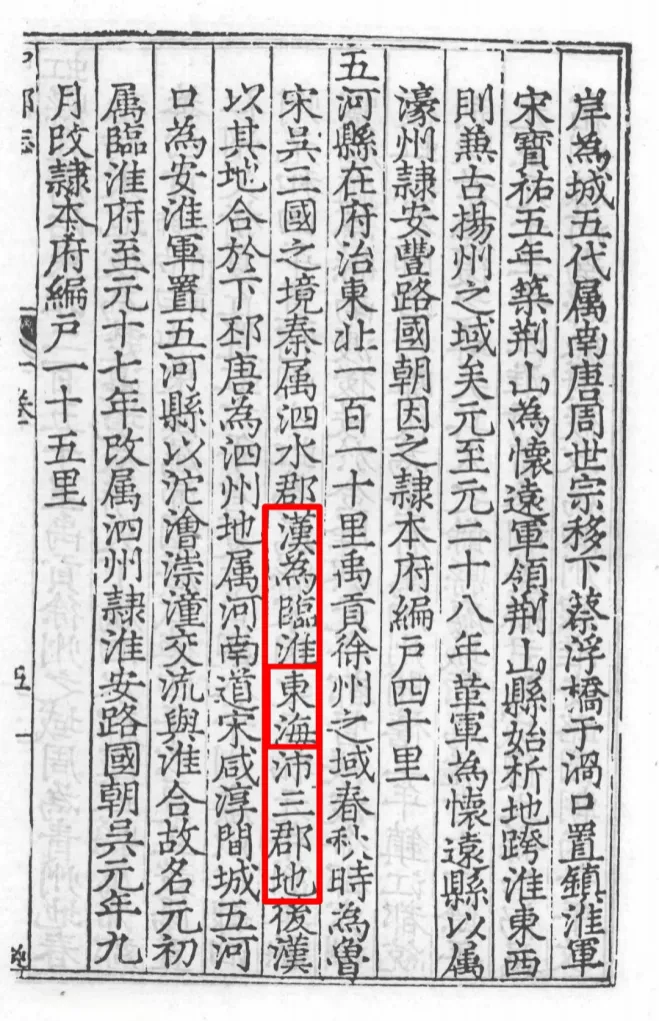 岸為城五代属南唐周世宗移下蔡浮橋于渦口置鎮淮軍
宋寶祐五年築荆山為懷遠軍領荆山縣始析地跨淮東西
則兼古揚州之域矣元至元二十八年革軍為懷遠縣以属
濠州隷安豐路國朝因之隷本府編戸四十里
五河縣在府治東北一百一十里禹貢徐州之域春秋時為魯
宋吳三國之境秦属泗水郡漢為臨淮東海沛三郡地後漢
以其地合於下邳唐為泗州地属河南道宋咸淳間城五河
口為安淮軍置五河縣以沱澮漴潼交流與淮合故名元初
属臨淮府至元十七年改属泗州隷淮安路國朝吳元年九
月改隷本府編戸一十五里
卷一
五